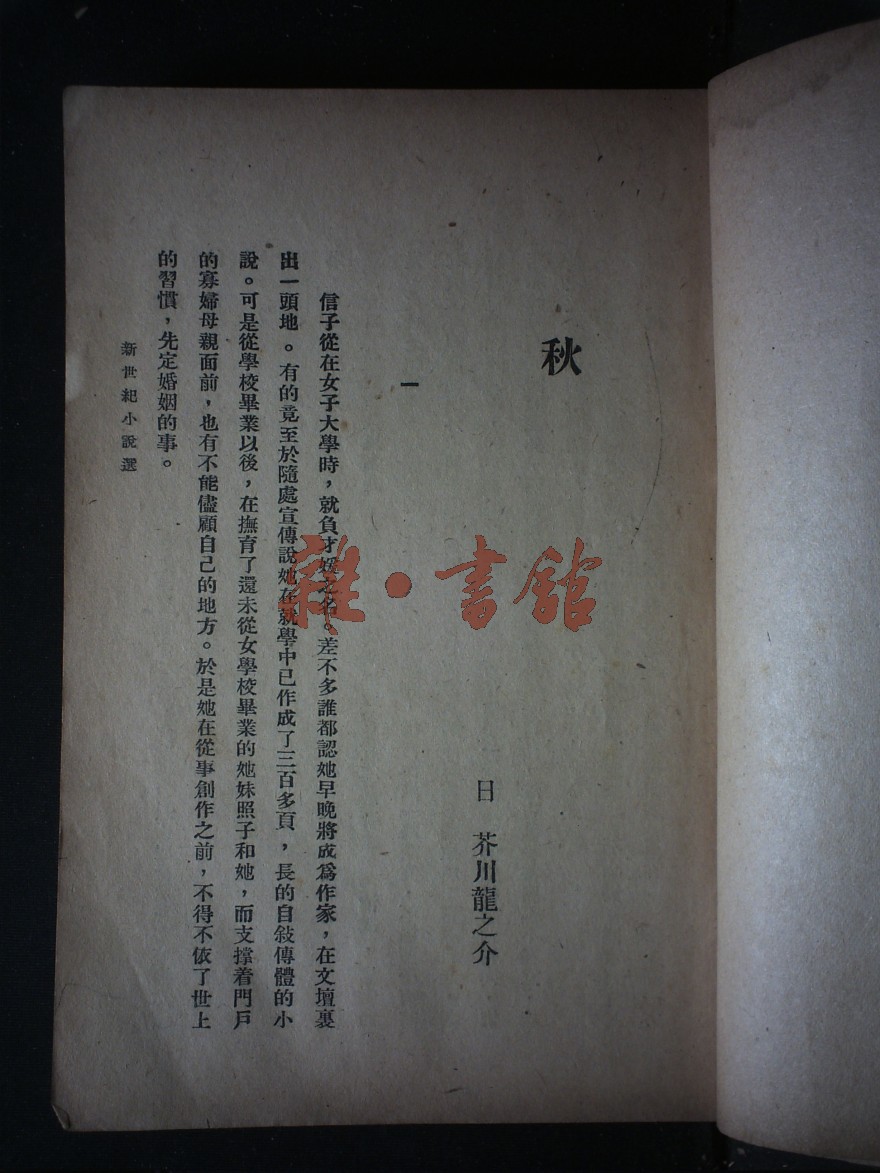 秋
日　芥川龍之介
一
信子從在女子大學時，就負才媛之名。差不多誰都認她早晚將成爲作家，在文壇裏
出一頭地。有的竟至於隨處宣傳說她在就學中已作成了三百多頁，長的自敍傳體的小
說。可是從學校畢業以後，在撫育了還未從女學校畢業的她妹照子和她，而支撐着門戶
的寡婦母親面前，也有不能儘顧自己的地方。於是她在從事創作之前，不得不依了世上
的習慣，先定婚姻的事。
新世紀小說選
雜·書館